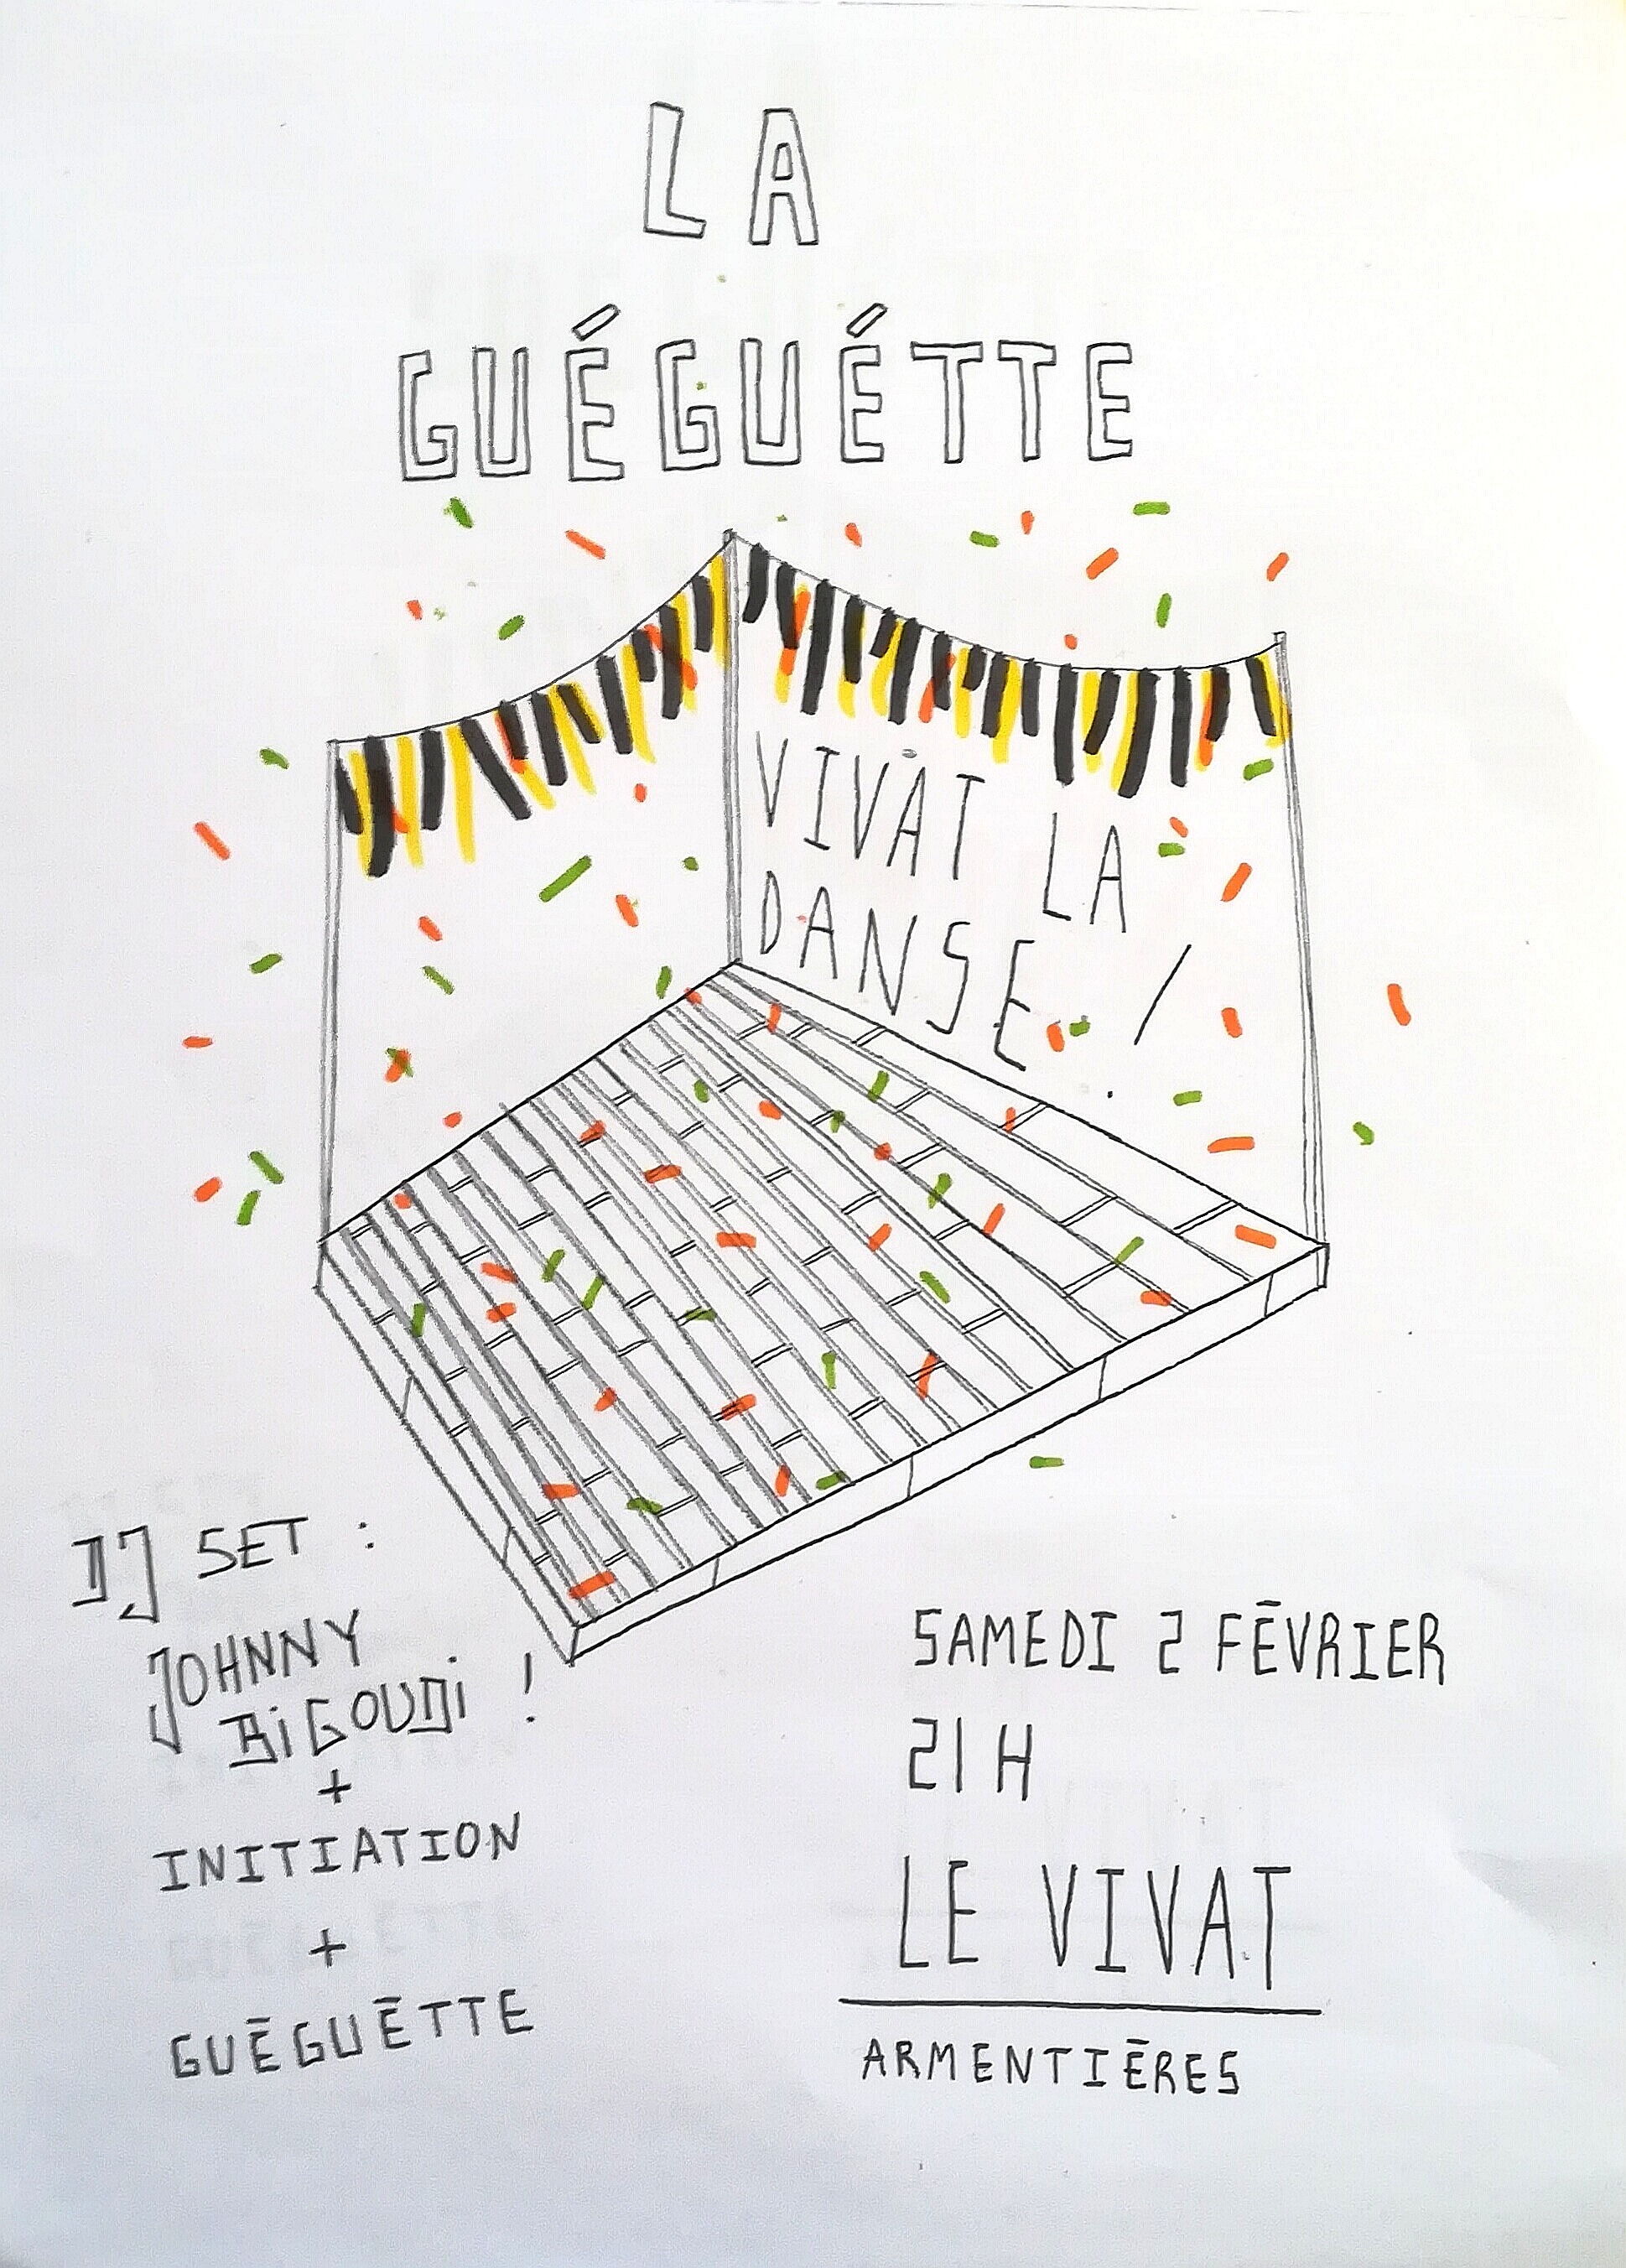 LA
GUÉGUÉTTE
VIVAT LA
DANSE !
DJ SET :
JOHNNY
BiGOUDi !
+
INITIATION
+
GUĒGUĒTTE
SAMEDI 2 FĒVRIER
21 H
LE VIVAT
ARMENTIĒRES